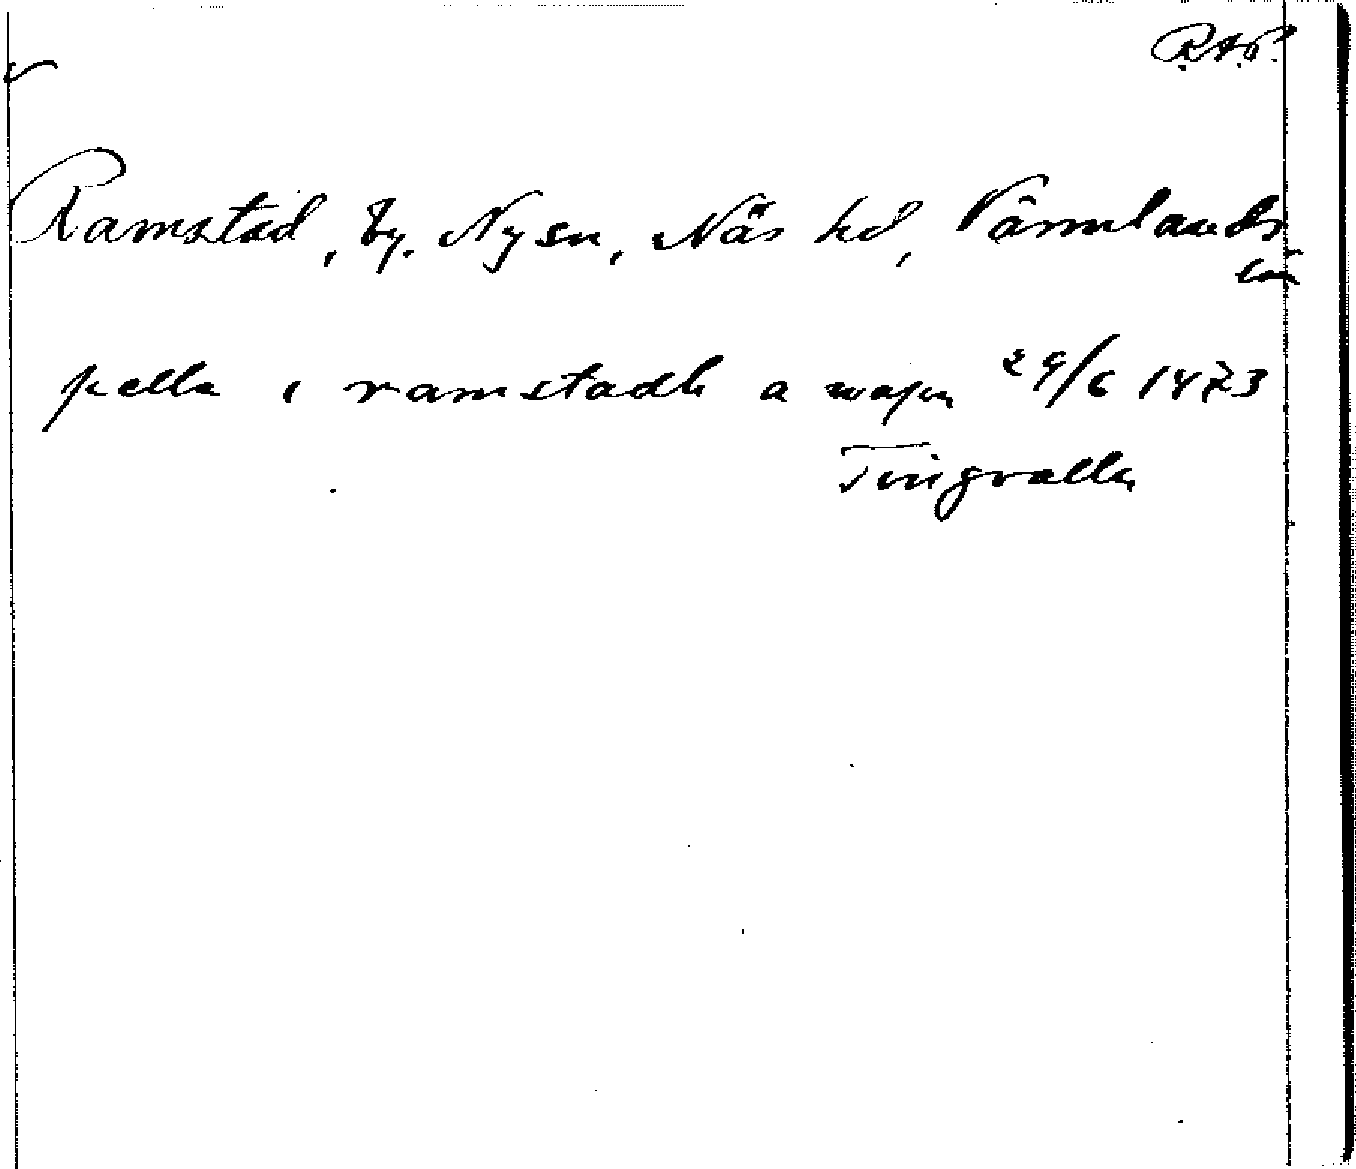 R.A.P.
Ramstad, by. Nysn, Näs hd, Värmlands
län
pelle i ramstadh a wagn 29/6 1473
Tingvalla